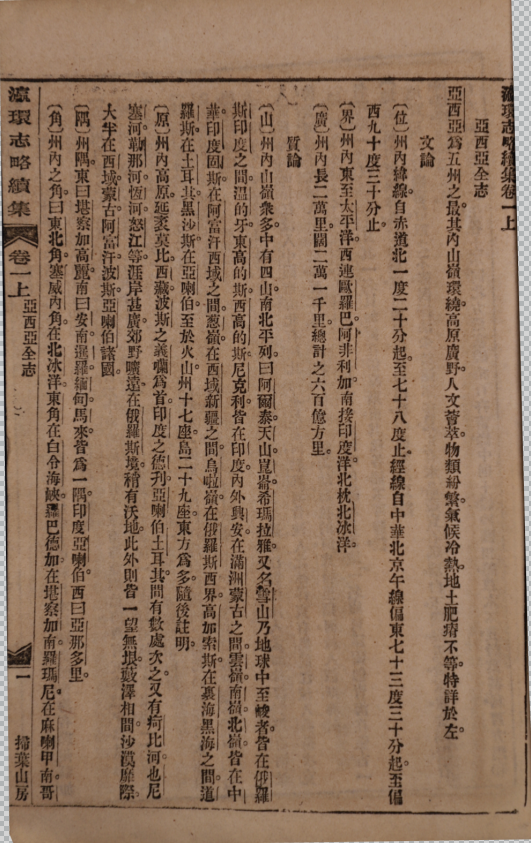 瀛環志略續集卷一上
亞西亞全志
亞西亞爲五州之最其內山嶺環繞高原廣野人文薈萃物類紛繁氣候冷熱地土肥瘠不等特詳於左
文論
〔位〕州內緯線自赤道北一度二十分起至七十八度止經線自中華北京午線偏東七十三度三十分起至偏
西九十度三十分止
〔界〕州內東至太平洋西連歐羅巴阿非利加南接印度洋北枕北冰洋
〔廣〕州內長二萬里闊二萬一千里總計之六百億方里
質論
〔山〕州內山嶺衆多中有四山南北平列曰阿爾泰天山崑崙希瑪拉雅又名雪山乃地球中至峻者皆在俄羅
斯印度之間溫的牙東高的斯西高的斯尼克利皆在印度內外興安在滿洲蒙古之間雲嶺南嶺北嶺皆在中
華印度固斯在阿富汗西域之間葱嶺在西域新疆之間烏啦嶺在俄羅斯西界高加索斯在裏海黑海之間道
羅斯在土耳其黑沙斯在亞喇伯至於火山州十七座島二十九座東方爲多隨後註明
〔原〕州內高原延袤莫比西藏波斯之義囒爲首印度之德利亞喇伯土耳其間有數處次之又有疴比河也尼
塞河勒那河恆河怒江等涯岸甚廣郊野曠遠在俄羅斯境稍有沃地此外則皆一望無垠藪澤相間沙漠靡際
大半在西域蒙古阿富汗波斯亞喇伯諸國
〔隅〕州隅東曰堪察加高麗南曰安南暹羅緬甸馬來皆爲一隅印度亞喇伯西曰亞那多里
〔角〕州內之角曰東北角塞威內角在北冰洋東角在白令海峽羅巴德加在堪察加南羅瑪尼在麻喇甲南哥
瀛環志略續集
卷一上
亞西亞全志
一
掃葉山房